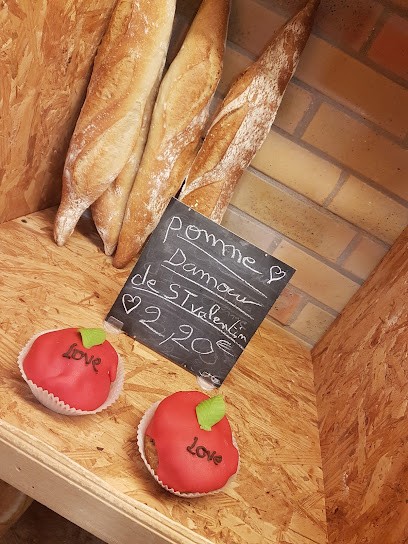 pomme ♡
Damour
de ST valentin
♡ 2,20€
Love
Love